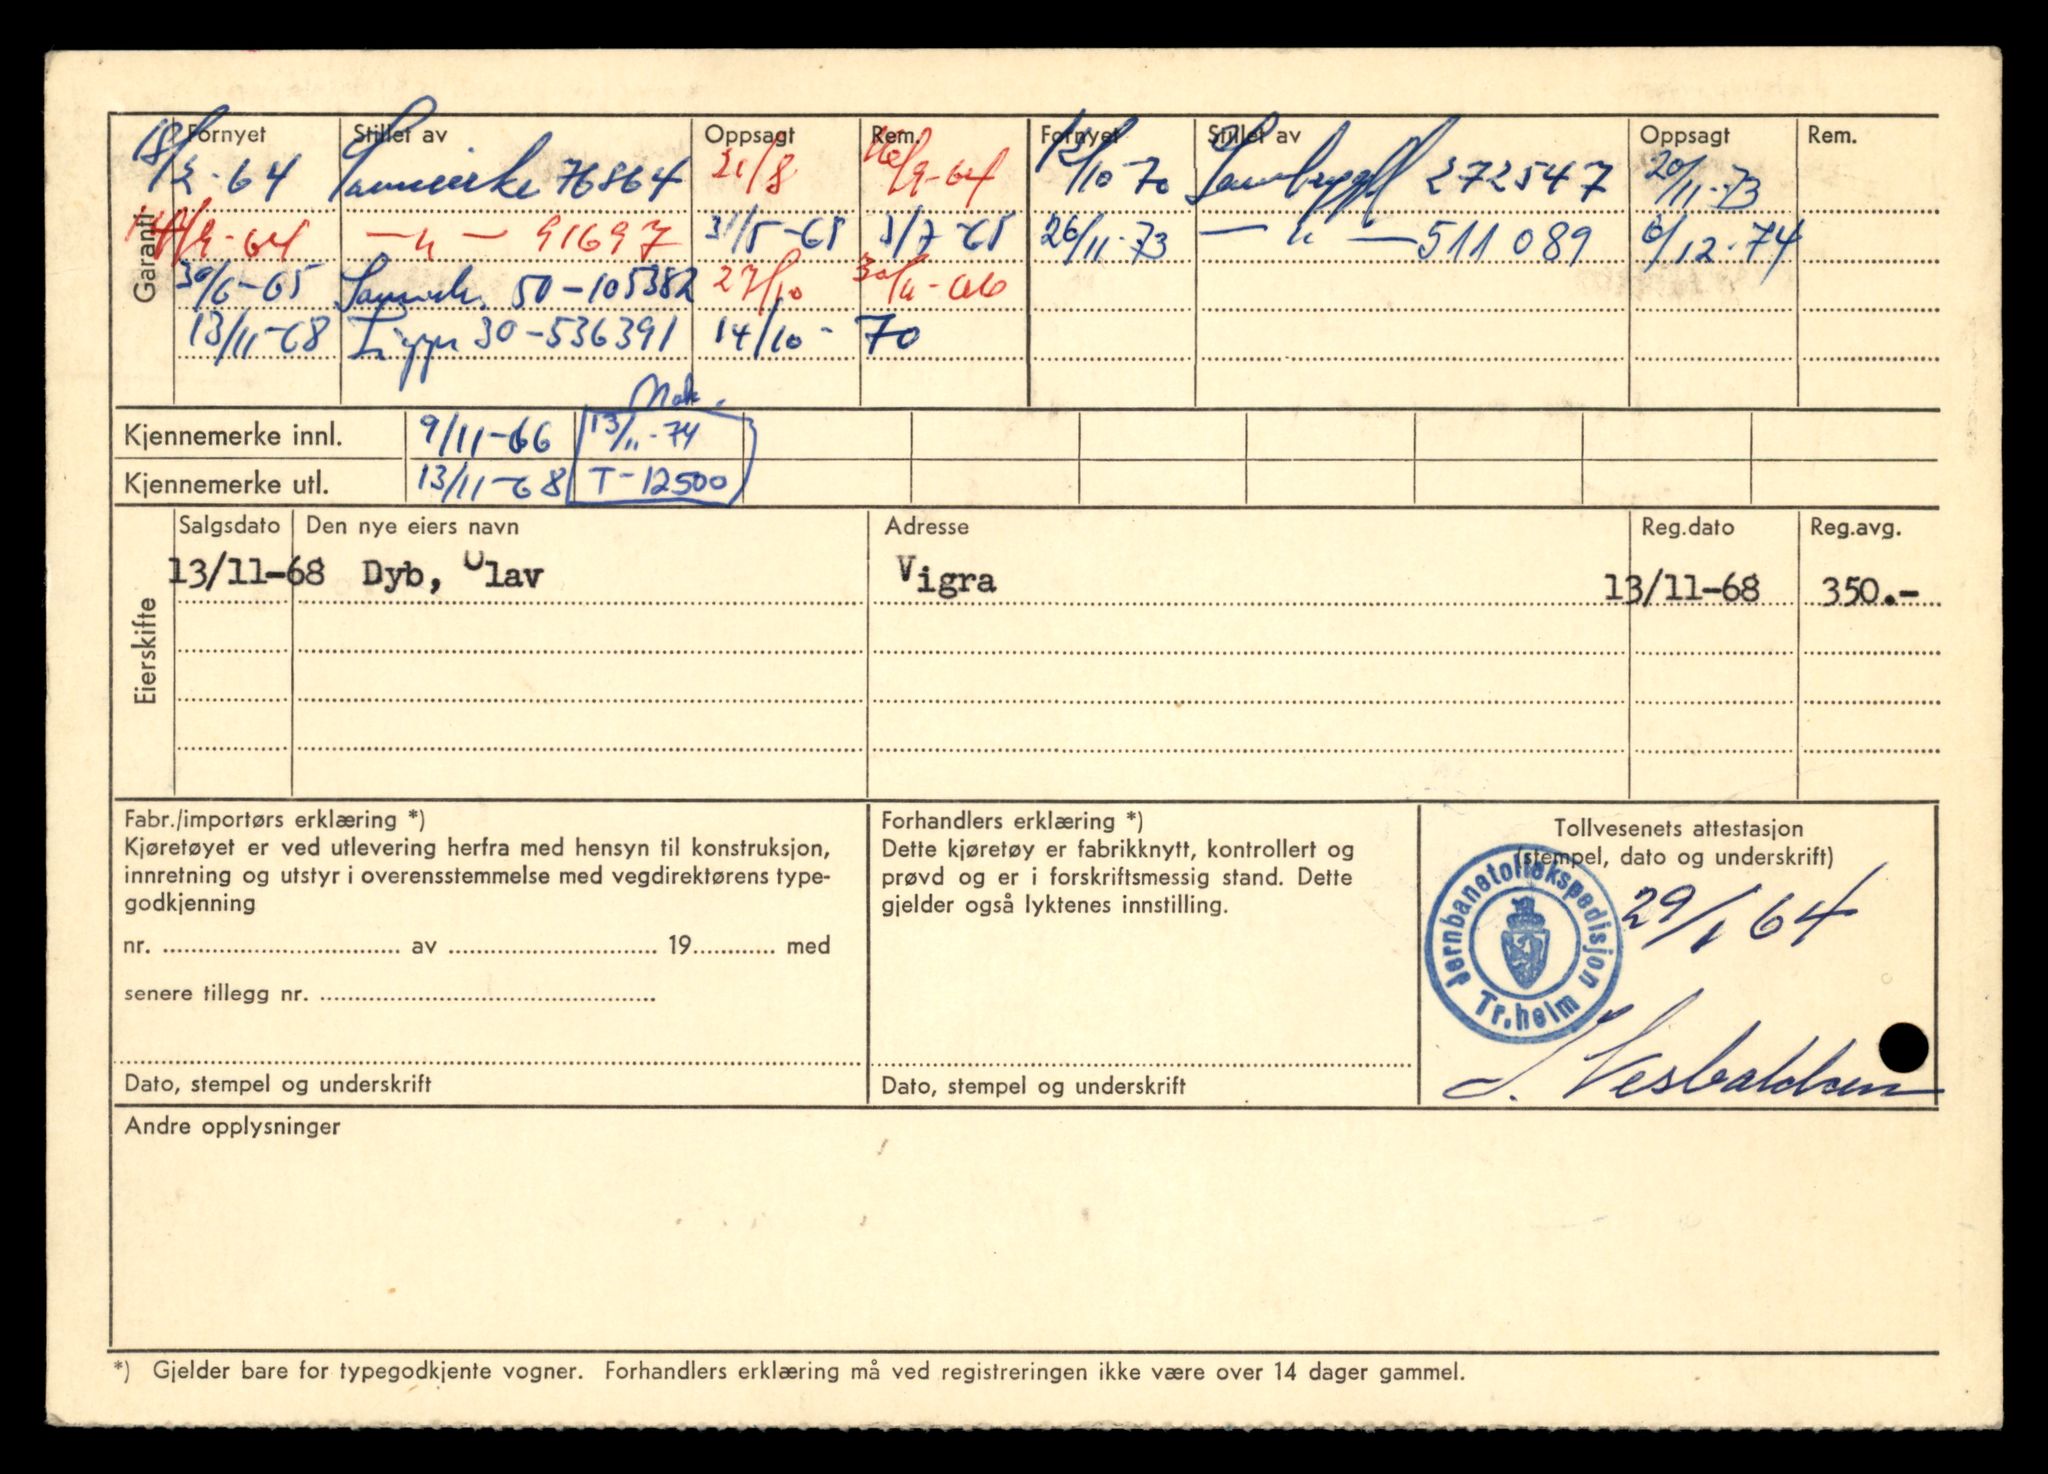 Garanti
Fornyet Stillet av Oppsagt Rem. Fornyet Stillet av Oppsagt Rem.
18/2-64 Samvirke 76864 21/8 16/9-64 12/10 70 Samtrygd 272547 20/11-73
14/9-64 —"— 91697 31/5-65 3/7-65 26/11-73 —"— 511089 6/12-74
30/6-65 Samvirk. 50-105382 27/10 30/11-66
13/11-68 30-536391 14/10-70
Kjennemerke innl. 9/11-66 13/11-74
Kjennemerke utl. 13/11-68 T-12500
Eierskifte
Salgsdato Den nye eiers navn Adresse Reg.dato Reg.avg.
13/11-68 Dyb, Olav Vigra 13/11-68 350.-
Fabr./importørs erklæring *)
Kjøretøyet er ved utlevering herfra med hensyn til konstruksjon,
innretning og utstyr i overensstemmelse med vegdirektørens type-
godkjenning
nr. .......... av .......... 19.......... med
senere tillegg nr. ..........
Dato, stempel og underskrift
Forhandlers erklæring *)
Dette kjøretøy er fabrikknytt, kontrollert og
prøvd og er i forskriftsmessig stand. Dette
gjelder også lyktenes innstilling.
Dato, stempel og underskrift
Tollvesenets attestasjon
(stempel, dato og underskrift)
Jernbanetollekspedisjon
Tr.heim
29/1 64
Andre opplysninger
*) Gjelder bare for typegodkjente vogner. Forhandlers erklæring må ved registreringen ikke være over 14 dager gammel.